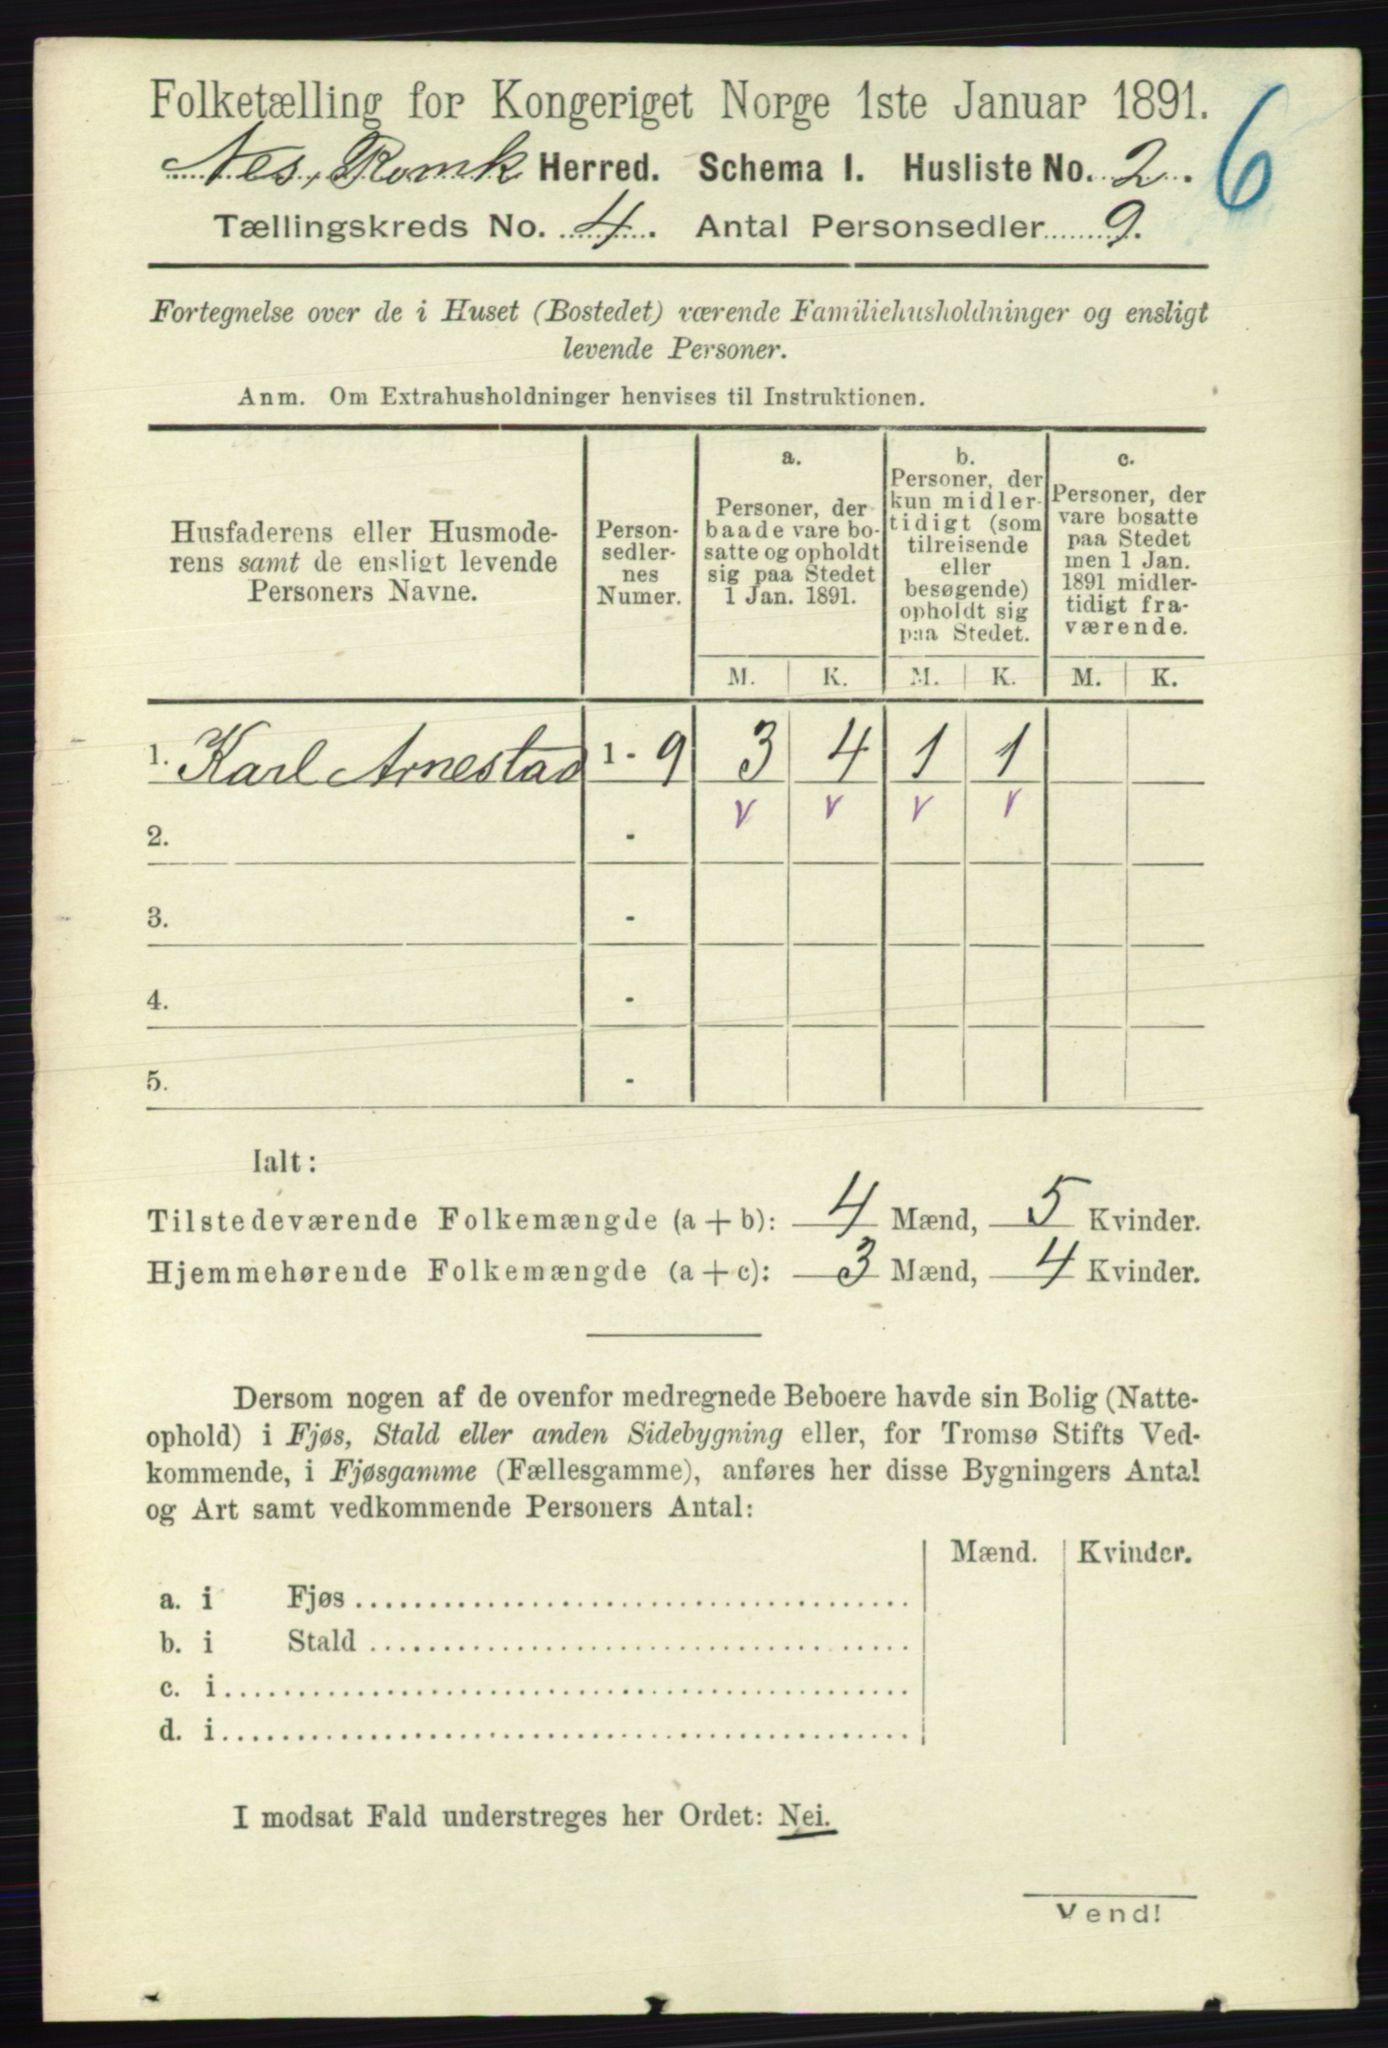 Folketælling for Kongeriget Norge 1ste Januar 1891.
6
Nes, Romk Herred. Schema I. Husliste No. 2.
Tællingskreds No. 4. Antal Personsedler 9.
Fortegnelse over de i Huset (Bostedet) værende Familiehusholdninger og ensligt
levende Personer.
Anm. Om Extrahusholdninger henvises til Instruktionen.
Husfaderens eller Husmode-
rens samt de ensligt levende
Personers Navne.
Person-
sedler-
nes
Numer.
a.
Personer, der
baade vare bo-
satte og opholdt
sig paa Stedet
1 Jan. 1891.
b.
Personer, der
kun midler-
tidigt (som
tilreisende
eller
besøgende)
opholdt sig
paa Stedet.
c.
Personer, der
vare bosatte
paa Stedet
men 1 Jan.
1891 midler-
tidigt fra-
værende.
M. K. M. K. M. K.
1. Karl Arnestad 1 - 9 3 4 1 1
v v v v
2. -
3. -
4. -
5. -
Ialt:
Tilstedeværende Folkemængde (a + b): 4 Mænd, 5 Kvinder.
Hjemmehørende Folkemængde (a + c): 3 Mænd, 4 Kvinder.
Dersom nogen af de ovenfor medregnede Beboere havde sin Bolig (Natte-
ophold) i Fjøs, Stald eller anden Sidebygning eller, for Tromsø Stifts Ved-
kommende, i Fjøsgamme (Fællesgamme), anføres her disse Bygningers Antal
og Art samt vedkommende Personers Antal:
Mænd. Kvinder.
a. i Fjøs
b. i Stald
c. i
d. i
I modsat Fald understreges her Ordet: Nei.
Vend!